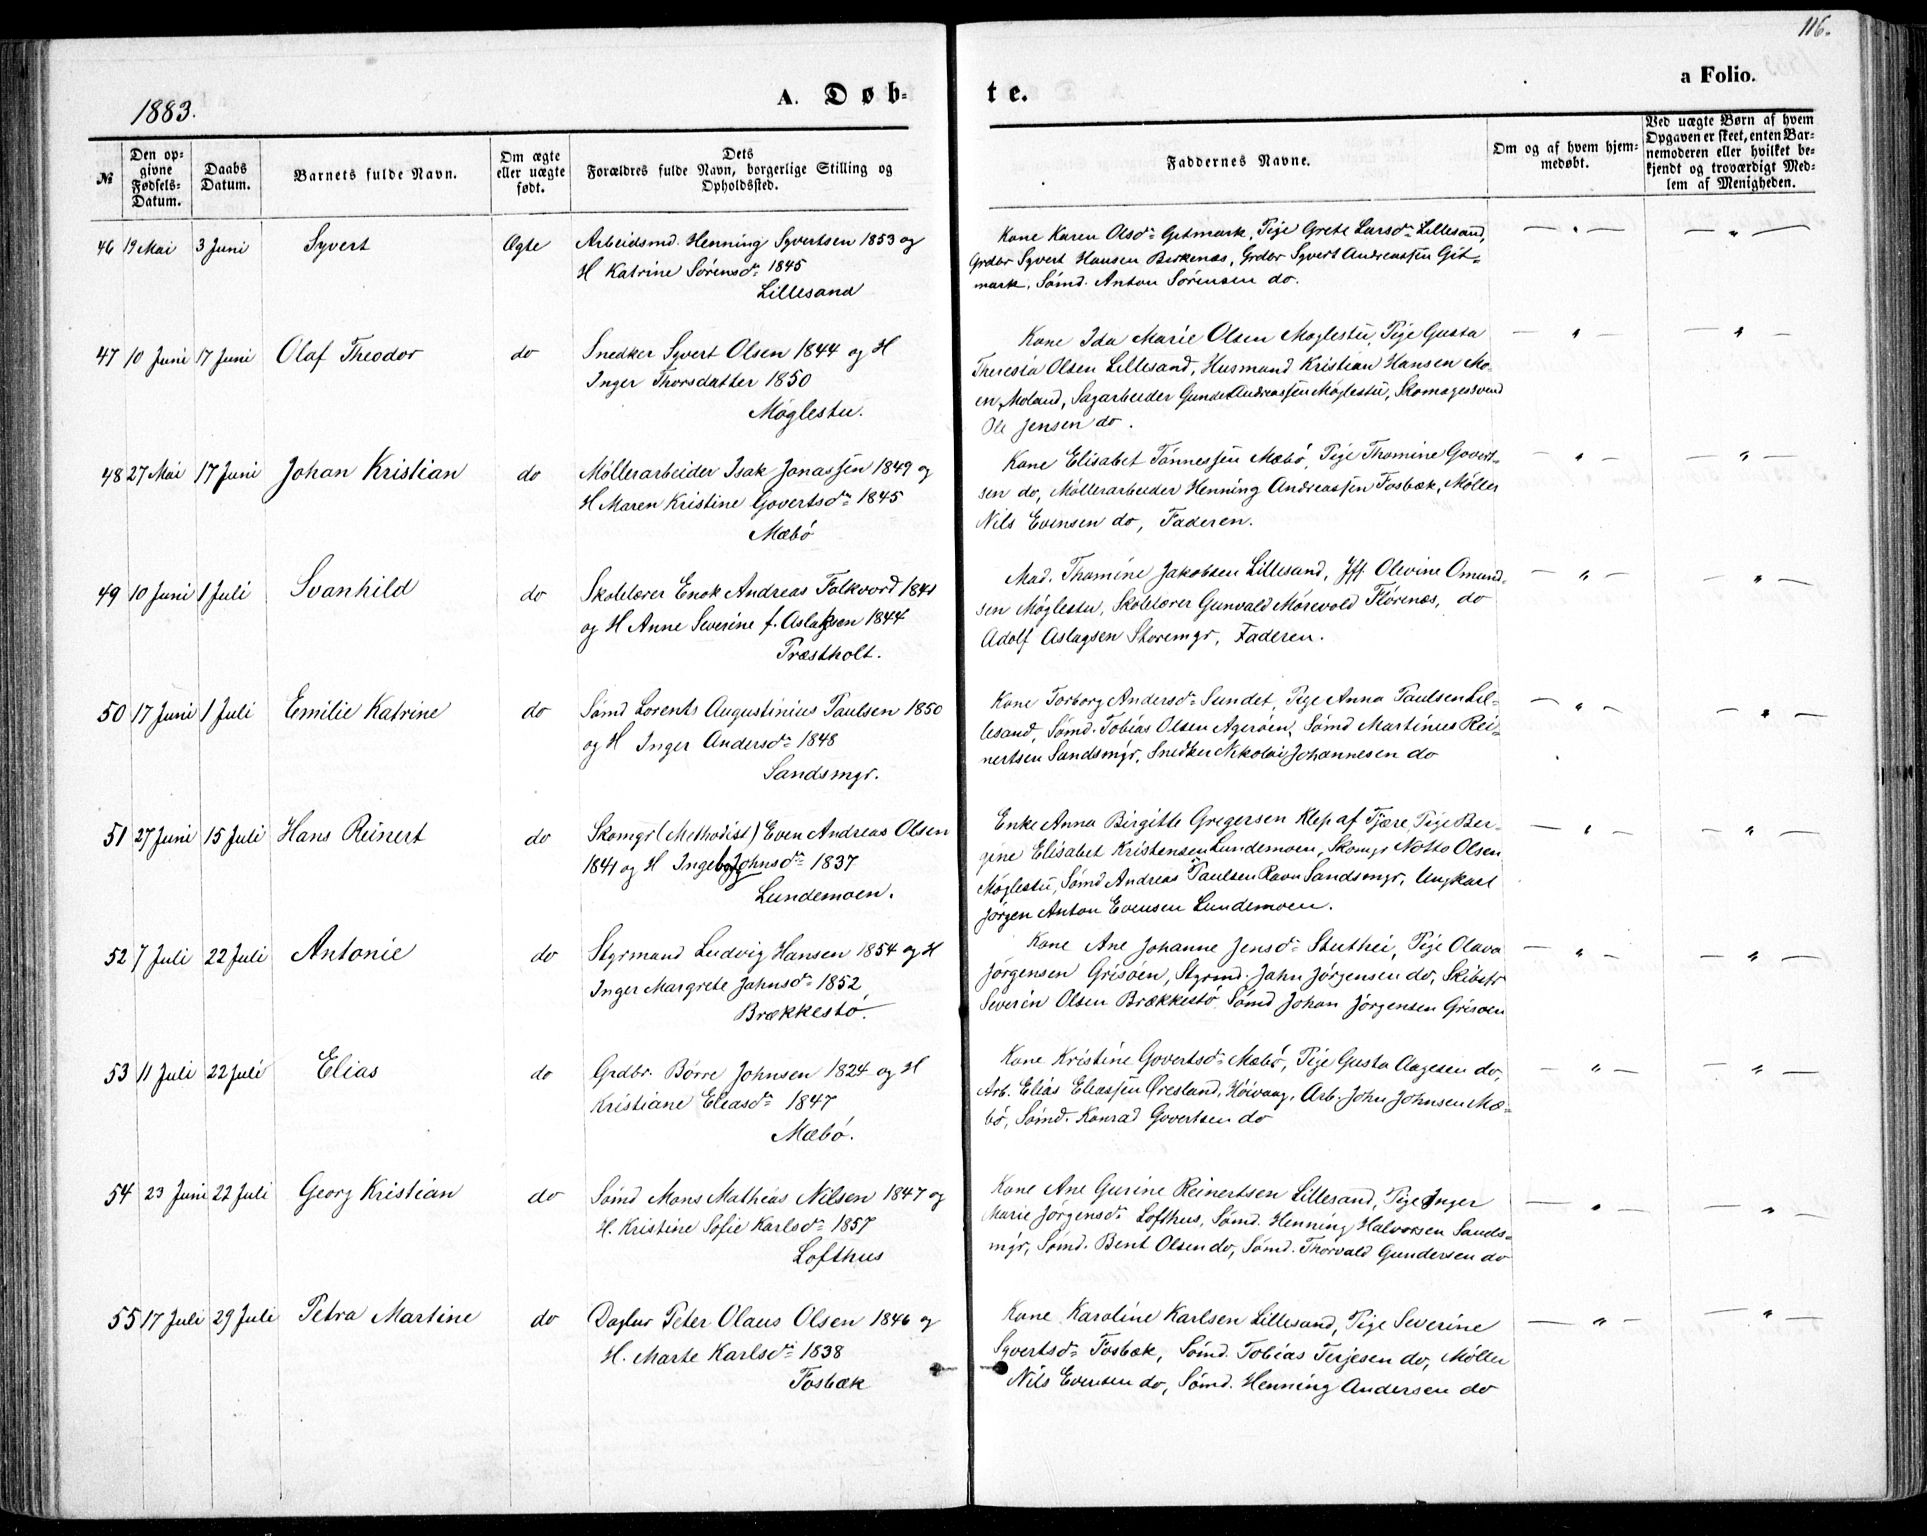 116.
1883.
A. Døb-
te.
a Folio.
№
Den op-
givne
Fødsels-
Datum.
Daabs
Datum.
Barnets fulde Navn.
Om ægte
eller uægte
født.
Dets
Forældres fulde Navn, borgerlige Stilling og
Opholdssted.
Faddernes Navne.
Om og af hvem hjem-
medøbt.
Ved uægte Børn af hvem
Opgaven er skeet, enten Bar-
nemoderen eller hvilket be-
kjendt og troværdigt Med-
lem af Menigheden.
46 19 Mai 3 Juni Syvert Ægte Arbeidsmd. Henning Syvertsen 1853 og
H Katrine Sørensdr 1845
Lillesand
Kone Karen Olsdr Gitmark, Pige Grete Larsdr Lillesand,
Grdbr Syvert Hansen Birkenæs, Grdbr Syvert Andreassen Git-
mark, Sømd. Anton Sørensen do.
47 10 Juni 17 Juni Olaf Theodor do Snedker Syvert Olsen 1844 og H
Inger Thorsdatter 1850
Møglestu.
Kone Ida Marie Olsen Møglestu, Pige Gusta
Theresia Olsen Lillesand, Husmand Kristian Hansen Mo-
en, Moland, Sagarbeider Gunder Andreassen Møglestu, Skomagersvend
Ole Jensen do.
48 27 Mai 17 Juni Johan Kristian do Møllerarbeider Isak Jonassen 1849 og
H Maren Kristine Govertsdr 1845
Mæbø
Kone Elisabet Tønnessen Mæbø, Pige Thomine Govert-
sen do, Møllerarbeider Henning Andreassen Fosbæk, Møller
Nils Evensen do, Faderen.
49 10 Juni 1 Juli Svanhild do Skolelærer Enok Andreas Folkvord 1841
og H Anne Severine f. Aslaksen 1844
Præstholt.
Mad. Thomine Jakobsen Lillesand, Jfr. Olevine Omund-
sen Møglestu, Skolelærer Gunvald Mørevold Flørenæs, do
Adolf Aslagsen Storemyr, Faderen.
50 17 Juni 1 Juli Emilie Katrine do Sømd Lorents Augustinius Paulsen 1850
og H Inger Andersdr 1848
Sandsmyr.
Kone Torborg Andersdr Sundet, Pige Anna Paulsen Lil-
lesand, Sømd. Tobias Olsen Agerøen, Sømd Martinus Rei-
nertsen Sandsmyr, Snedker Nikolai Johannesen do
51 27 Juni 15 Juli Hans Reinert do Skomgr (Methodist) Even Andreas Olsen
1841 og H Ingeborg Johnsdr 1837
Lundemoen.
Enke Anna Birgitte Gregersen Klep af Fjære, Pige Ber-
gine Elisabet Kristensen Lundemoen, Skomgr Notto Olsen
Møglestu, Sømd Andreas Paulsen Ravn Sandsmyr, Ungkarl
Jørgen Anton Evensen Lundemoen.
52 7 Juli 22 Juli Antonie do Styrmand Ludvig Hansen 1854 og H
Inger Margrete Jahnsdr 1852
Brækkestø.
Kone Ane Johanne Jensdr Stuthei, Pige Olava
Jørgensen Grisøen, Styrmd. Jahn Jørgensen do, Skibstr
Severin Olsen Brækkestø, Sømd Johan Jørgensen Grisøen
53 11 Juli 22 Juli Elias do Grdbr. Børre Johnsen 1824 og H
Kristiane Eliasdr 1847
Mæbø.
Kone Kristine Govertsdr Mæbø, Pige Gusta Aagesen do,
Arb. Elias Eliassen Øresland, Høivaag, Arb. John Johnsen Mæ-
bø, Sømd. Konrad Govertsen do
54 23 Juni 22 Juli Georg Kristian do Sømd Mons Mathias Nilsen 1847 og
H. Kristine Sofie Karlsdr 1857
Lofthus
Kone Ane Gurine Reinertsen Lillesand, Pige Inger
Marie Jørgensdr Lofthus, Sømd. Henning Halvorsen Sands-
myr, Sømd. Bent Olsen do, Sømd. Thorvald Gundersen do
55 17 Juli 29 Juli Petra Martine do Daglnr Peter Olaus Olsen 1846 og
H. Marte Karlsdr 1838
Fosbæk
Kone Karoline Karlsen Lillesand, Pige Severine
Syvertsdr Fosbæk, Sømd. Tobias Terjesen do, Møller
Nils Evensen do, Sømd. Henning Andersen do